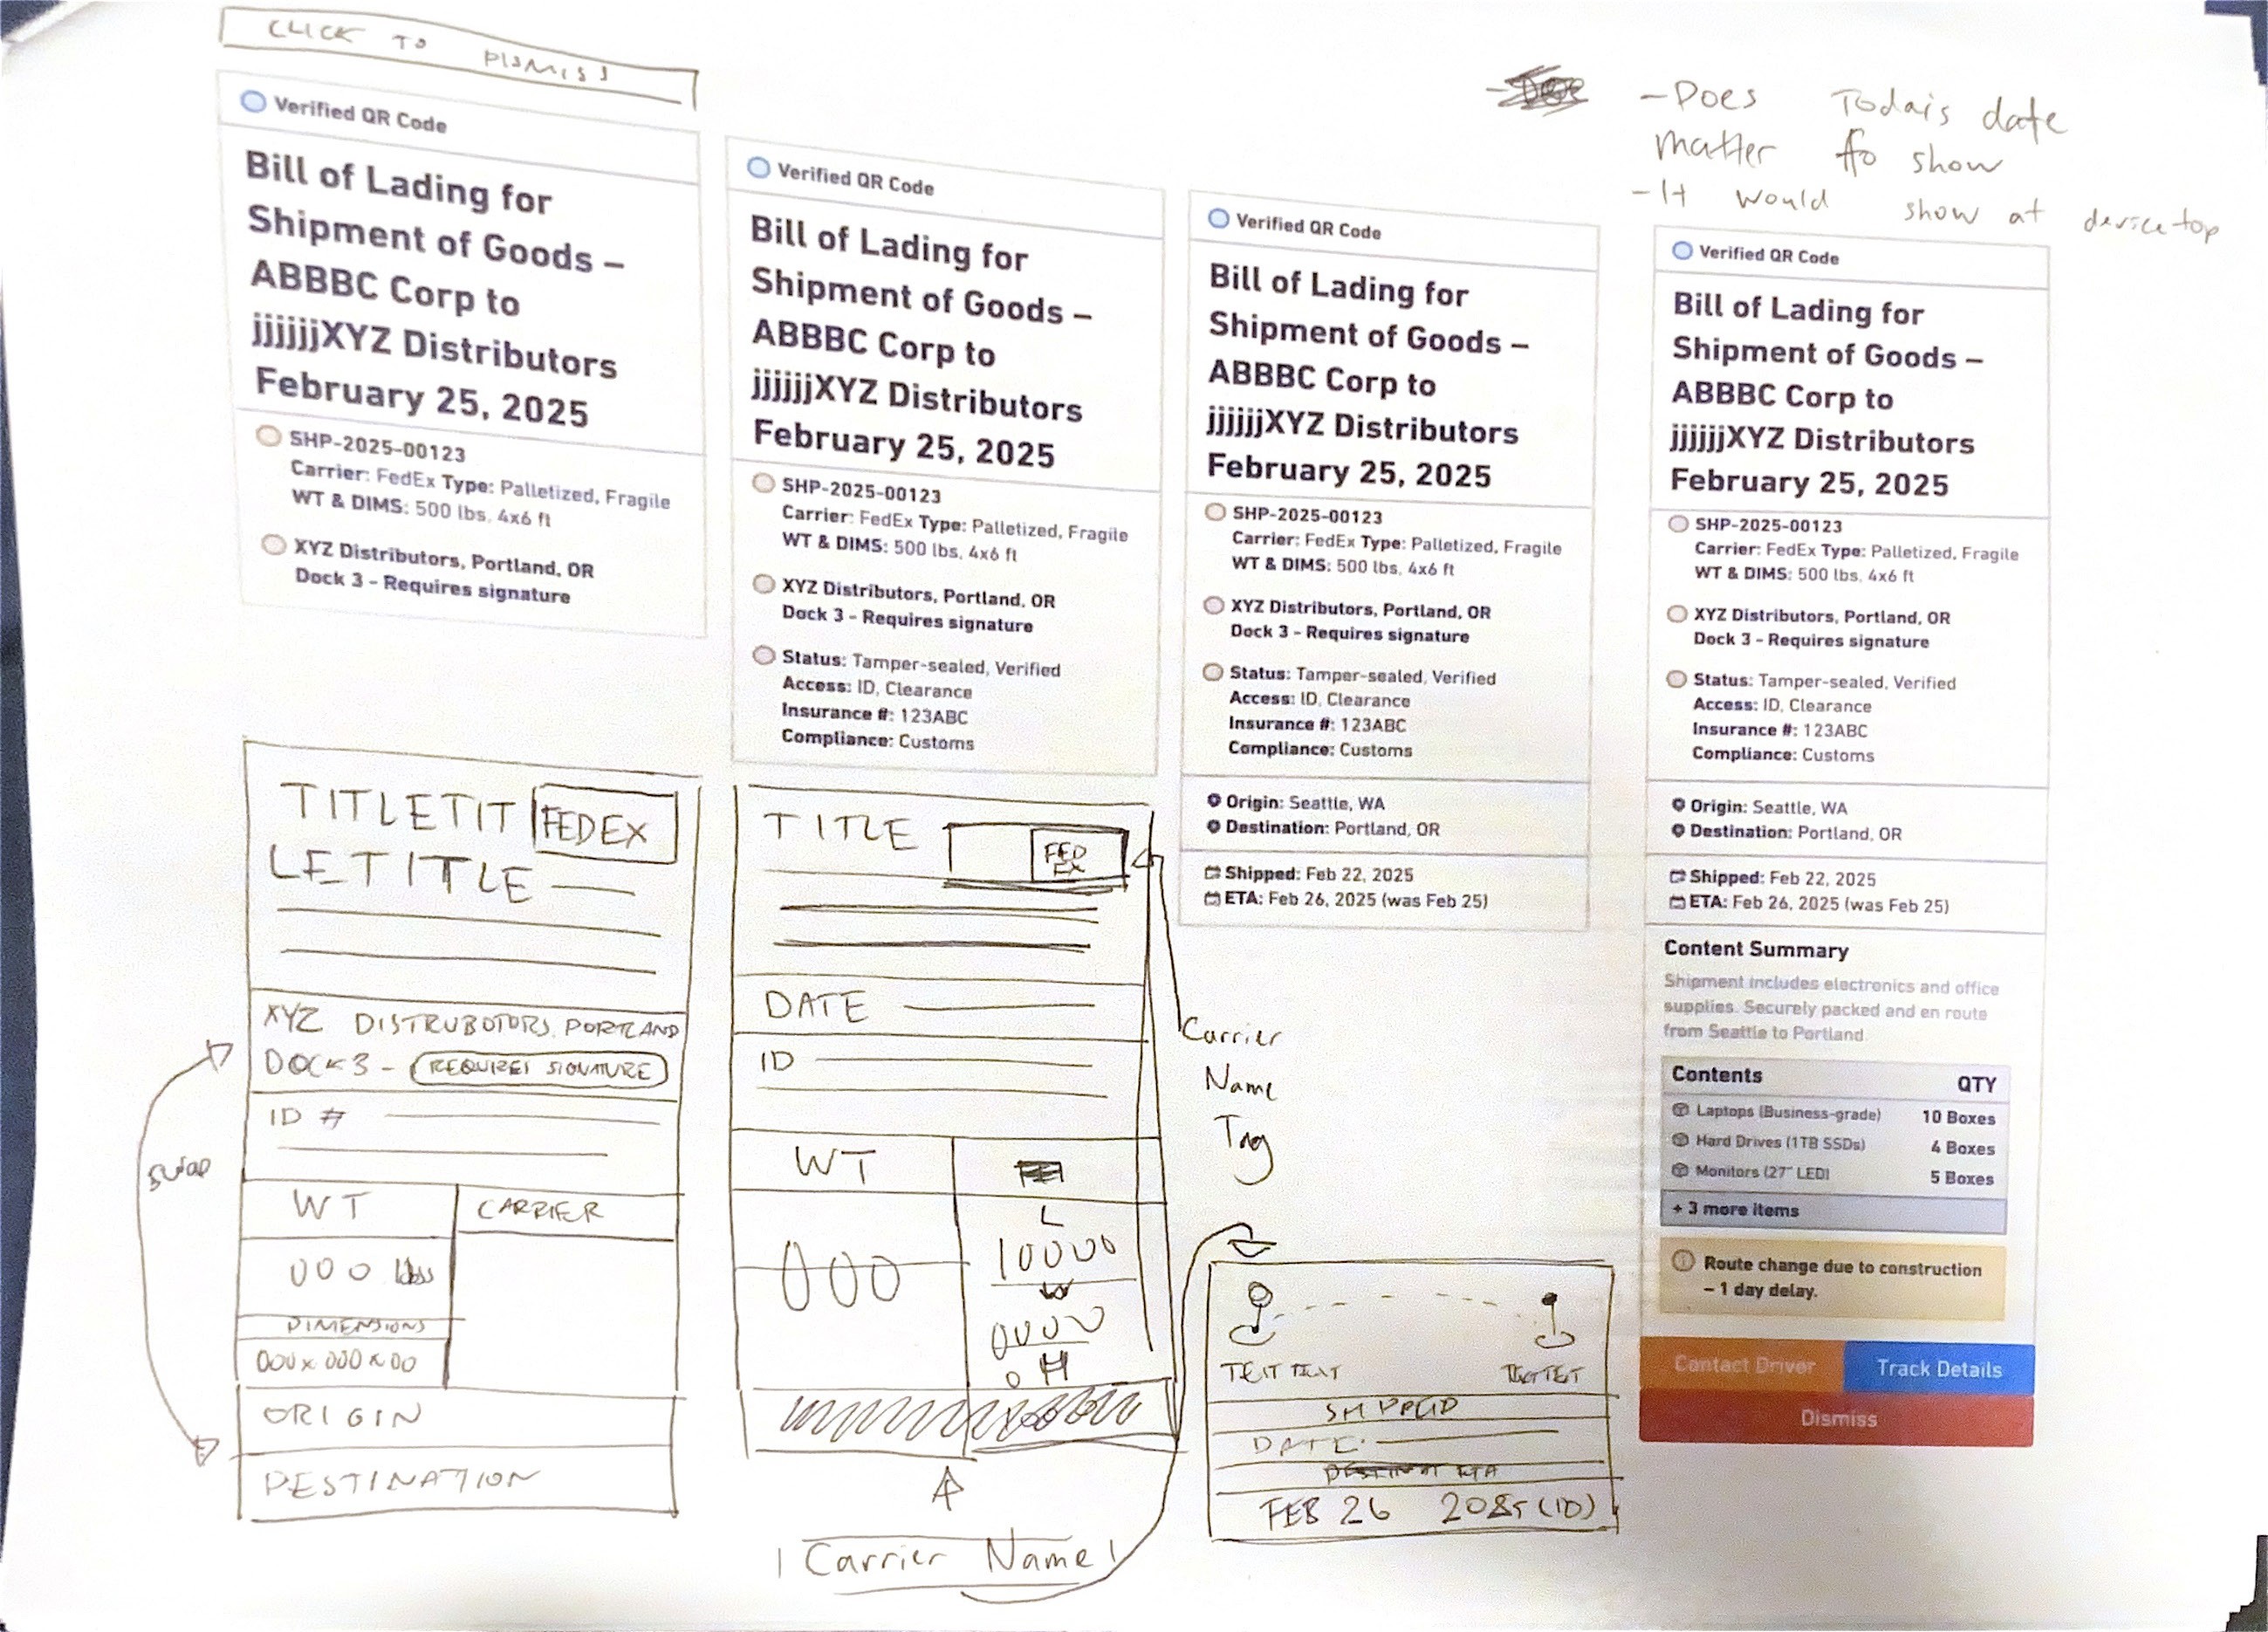 CLICK TO DISMISS
Verified QR Code
Bill of Lading for
Shipment of Goods –
ABBBC Corp to
jjjjjjXYZ Distributors
February 25, 2025
SHP-2025-00123
Carrier: FedEx Type: Palletized, Fragile
WT & DIMS: 500 lbs, 4x6 ft
XYZ Distributors, Portland, OR
Dock 3 - Requires signature
Verified QR Code
Bill of Lading for
Shipment of Goods –
ABBBC Corp to
jjjjjjXYZ Distributors
February 25, 2025
SHP-2025-00123
Carrier: FedEx Type: Palletized, Fragile
WT & DIMS: 500 lbs, 4x6 ft
XYZ Distributors, Portland, OR
Dock 3 - Requires signature
Status: Tamper-sealed, Verified
Access: ID, Clearance
Insurance #: 123ABC
Compliance: Customs
Verified QR Code
Bill of Lading for
Shipment of Goods –
ABBBC Corp to
jjjjjjXYZ Distributors
February 25, 2025
SHP-2025-00123
Carrier: FedEx Type: Palletized, Fragile
WT & DIMS: 500 lbs, 4x6 ft
XYZ Distributors, Portland, OR
Dock 3 - Requires signature
Status: Tamper-sealed, Verified
Access: ID, Clearance
Insurance #: 123ABC
Compliance: Customs
Origin: Seattle, WA
Destination: Portland, OR
Shipped: Feb 22, 2025
ETA: Feb 26, 2025 (was Feb 25)
- Does Todais date
matter to show
- It would show at device top
Verified QR Code
Bill of Lading for
Shipment of Goods –
ABBBC Corp to
jjjjjjXYZ Distributors
February 25, 2025
SHP-2025-00123
Carrier: FedEx Type: Palletized, Fragile
WT & DIMS: 500 lbs, 4x6 ft
XYZ Distributors, Portland, OR
Dock 3 - Requires signature
Status: Tamper-sealed, Verified
Access: ID, Clearance
Insurance #: 123ABC
Compliance: Customs
Origin: Seattle, WA
Destination: Portland, OR
Shipped: Feb 22, 2025
ETA: Feb 26, 2025 (was Feb 25)
Content Summary
Shipment includes electronics and office
supplies. Securely packed and en route
from Seattle to Portland
Contents QTY
Laptops (Business-grade) 10 Boxes
Hard Drives (1TB SSDs) 4 Boxes
Monitors (27" LED) 5 Boxes
+ 3 more items
Route change due to construction
– 1 day delay.
Contact Driver Track Details
Dismiss
TITLETIT FEDEX
LETITLE
XYZ DISTRUBOTORS, PORTLAND
DOCK 3 - REQUIRES SIGNATURE
ID #
WT CARRIER
000 lbs
DIMENSIONS
000 x 000 x 00
ORIGIN
DESTINATION
swap
TITLE FED EX
DATE
ID
WT
L
000 10000
W
0000
0 H
Carrier Name
Carrier
Name
Tag
TEXT TEXT
SHIPPED
DATE:
ETA
FEB 26 2025 (1D)